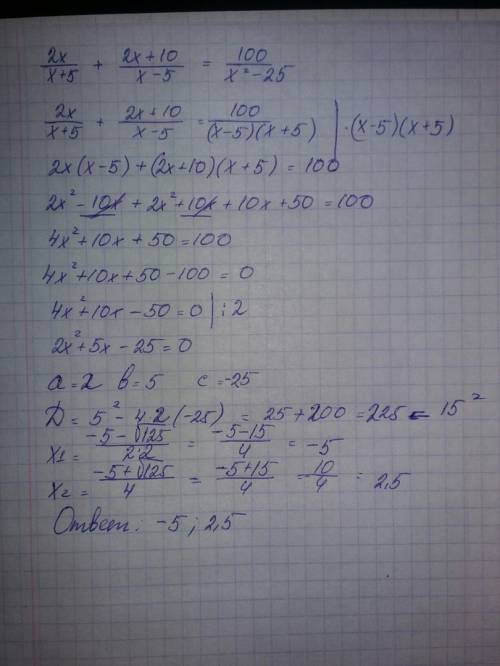 2x/(x+5) + (2x+10)/(x-5) = 100/(x²-25)
2x/(x+5) + (2x+10)/(x-5) = 100/((x-5)(x+5)) | ·(x-5)(x+5)
2x(x-5)+(2x+10)(x+5) = 100
2x²-10x+2x²+10x+10x+50=100
4x²+10x+50=100
4x²+10x+50-100=0
4x²+10x-50=0 | :2
2x²+5x-25=0
a=2 b=5 c=-25
D=5²-4·2·(-25) = 25+200=225=15²
x1 = (-5-√125)/(2·2) = (-5-15)/4 = -5
x2 = (-5+√125)/4 = (-5+15)/4 = 10/4 = 2,5
Ответ: -5; 2,5